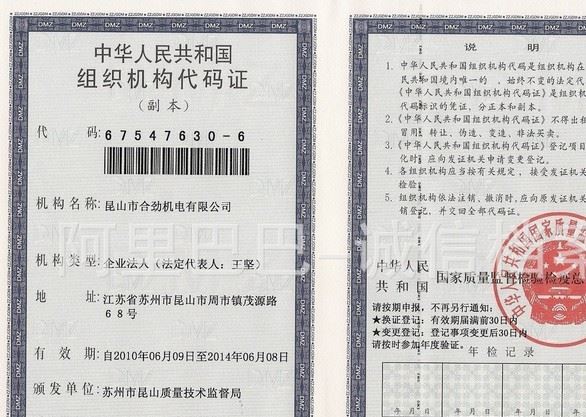 中华人民共和国
组织机构代码证
(副本)
代 码: 67547630-6
机构名称: 昆山市合劲机电有限公司
机构类型: 企业法人(法定代表人: 王坚)
地 址: 江苏省苏州市昆山市周市镇茂源路
68号
有 效 期: 自2010年06月09日至2014年06月08日
颁发单位: 苏州市昆山质量技术监督局
说 明
1. 中华人民共和国组织机构代码是组织机构在
民共和国境内唯一的、始终不变的法定代
《中华人民共和国组织机构代码证》是组织机
代码标识的凭证,分正本和副本。
2. 《中华人民共和国组织机构代码证》不得出租
冒用、转让、伪造、变造、非法买卖。
3. 《中华人民共和国组织机构代码证》登记项目
化时,应向发证机关申请变更登记。
4. 各组织机构应当按有关规定,接受发证机关
检验。
5. 组织机构依法注销、撤消时,应向原发证机关
销登记,并交回全部代码证。
中华人民
共和国
国家质量监督检验检疫总
请按期申报,不再另行通知:
★换证登记:有效期届满前30日内
★变更登记:登记事项变更后30日内
请按时参加年度验证。
年检记录
年 月 日 年 月 日 年 月 日
阿里巴巴-诚信